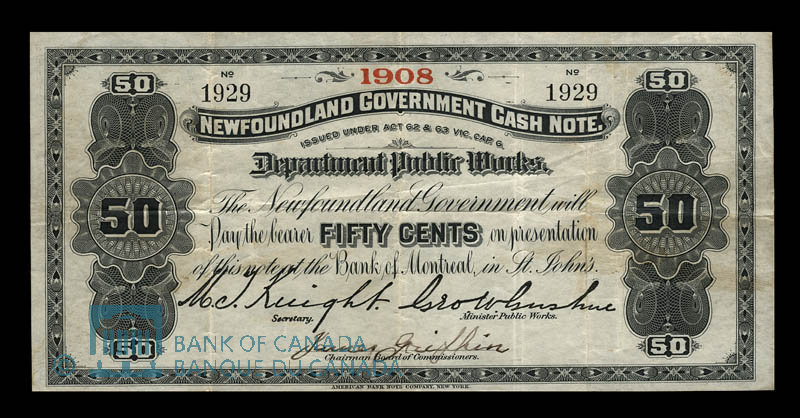 50 Nº 1908 Nº 50
1929 1929
NEWFOUNDLAND GOVERNMENT CASH NOTE.
ISSUED UNDER ACT 62 & 63 VIC. CAP 6.
Department Public Works.
The Newfoundland Government, will
50 Pay the bearer FIFTY CENTS on presentation 50
of this note at the Bank of Montreal, in St. John's.
Secretary. Minister Public Works.
50 Chairman Board of Commissioners. 50
AMERICAN BANK NOTE COMPANY, NEW YORK.
© BANK OF CANADA
BANQUE DU CANADA